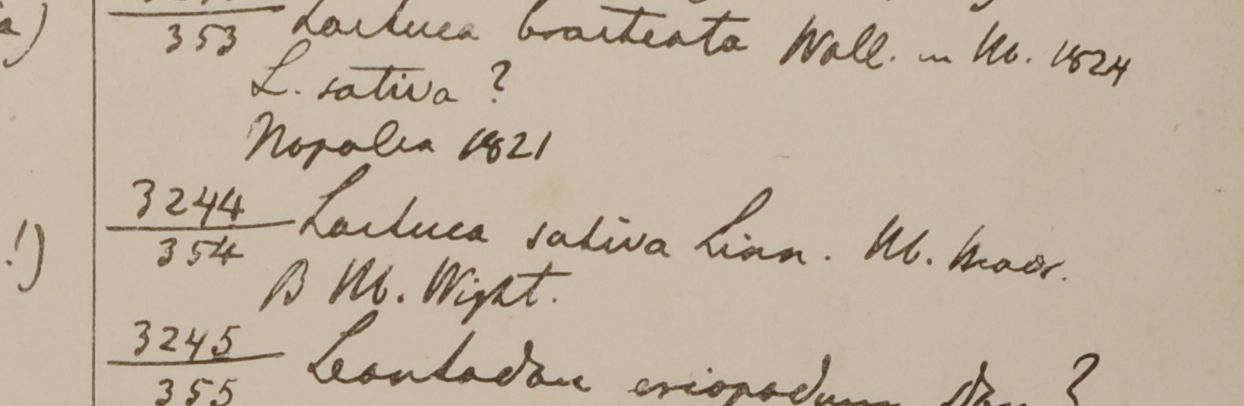 353 Lactuca bracteata Wall. in Hb. 1824
L. sativa ?
Napalia 1821
3244
354 Lactuca sativa Linn. Hb. Madr.
B Hb. Wight.
3245
355 Leontodon eriopodum Don ?